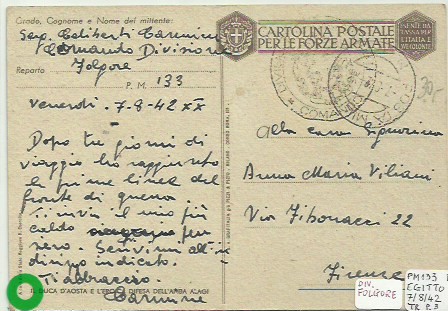 Grado, Cognome e Nome del mittente:
Serg. Caliberti Carmine
Comando Divisione
Folgore
Reparto
P. M. 133
Venerdì - 7-8-42 XX
Dopo tre giorni di
viaggio ho raggiunto
la prima linea del
fronte di guerra.
Ti invio il mio più
caldo pen
siero. Scrivimi all'in
dirizzo indicato.
Ti abbraccio
Carmine
IL DUCA D'AOSTA E L'EROICA DIFESA DELL'AMBA ALAGI
CARTOLINA POSTALE
PER LE FORZE ARMATE
ESENTE DA
TASSA PER
L'ITALIA E
COLONIE
POSTA
COMANDO
30,-
Alla cara Signorina
Anna Maria Viliani
Via Fibonacci 22
Firenze
DIV.
FOLGORE
PM133
EGITTO
7/8/42